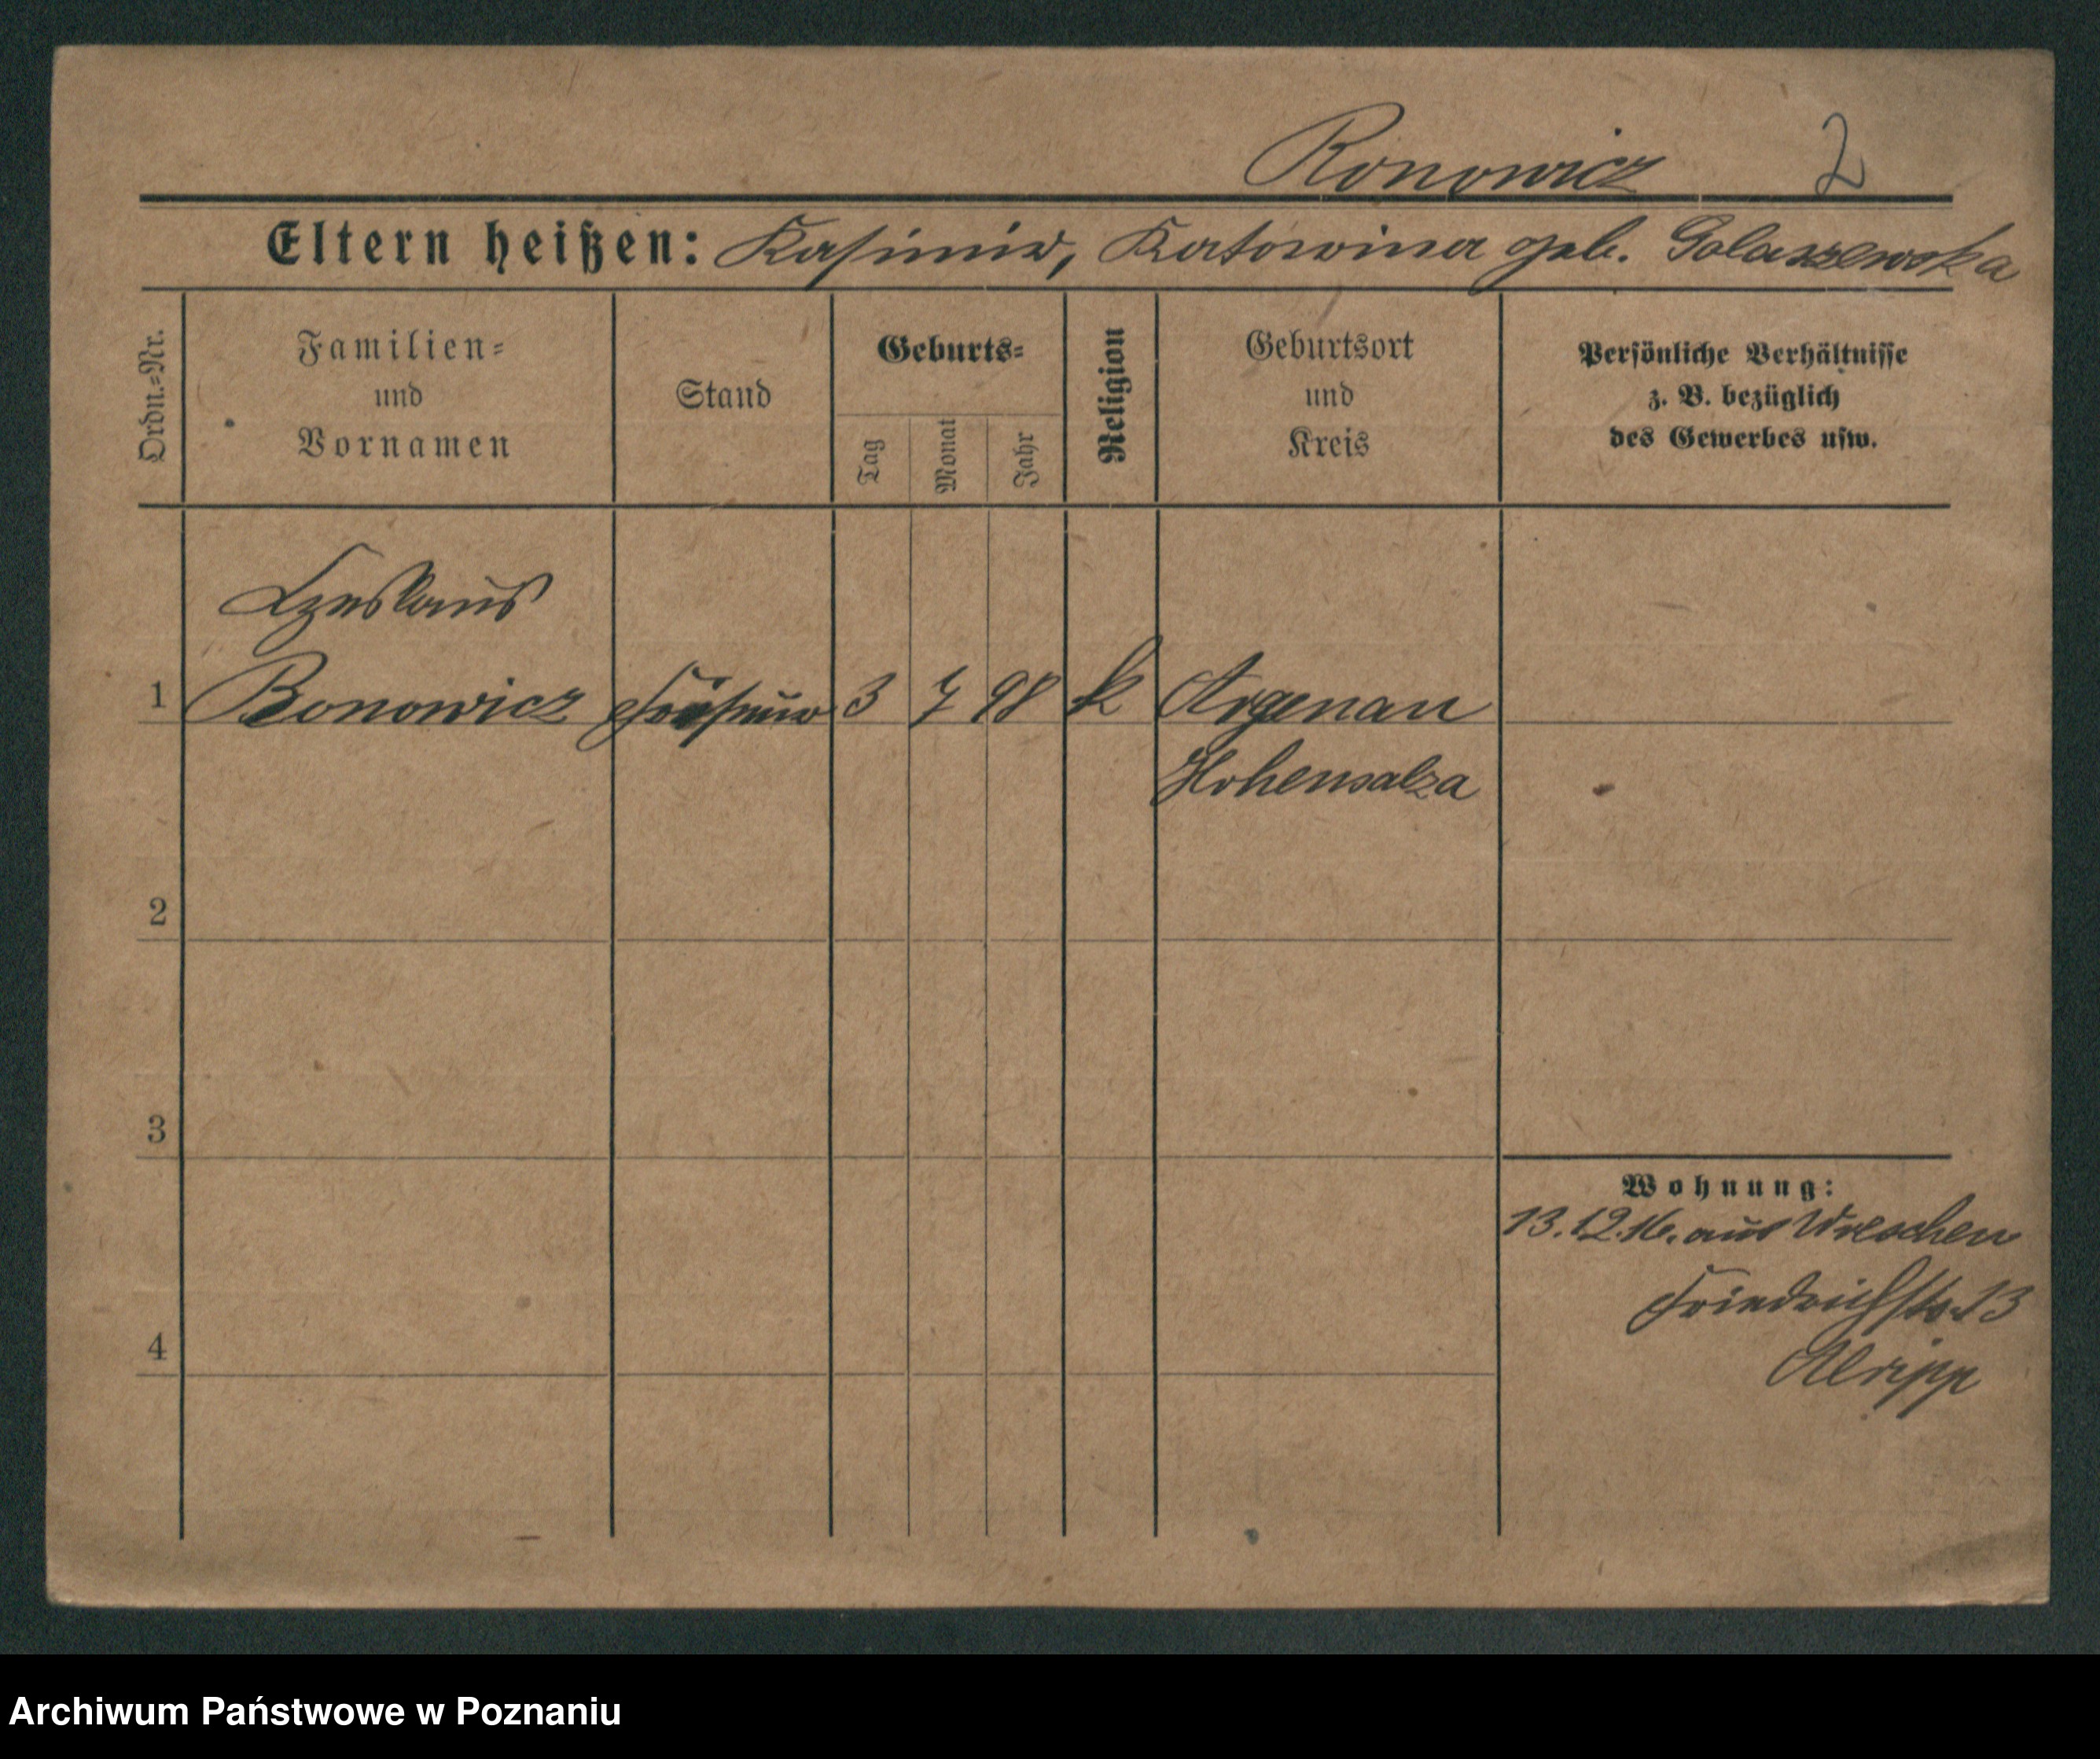 Ronowicz 2
Eltern heißen: Kasimir, Katarina geb. Golaszewska
Ordn.=Nr.
Familien=
und
Vornamen
Stand
Geburts=
Tag
Monat
Jahr
Religion
Geburtsort
und
Kreis
Persönliche Verhältnisse
z. B. bezüglich
des Gewerbes usw.
Czeslaus
1 Bonowicz Friseur 3 7 98 k Argenau
Hohensalza
2
3
4
Wohnung:
13.12.16. aus Wreschen
Friedrichstr. 13
Archiwum Państwowe w Poznaniu